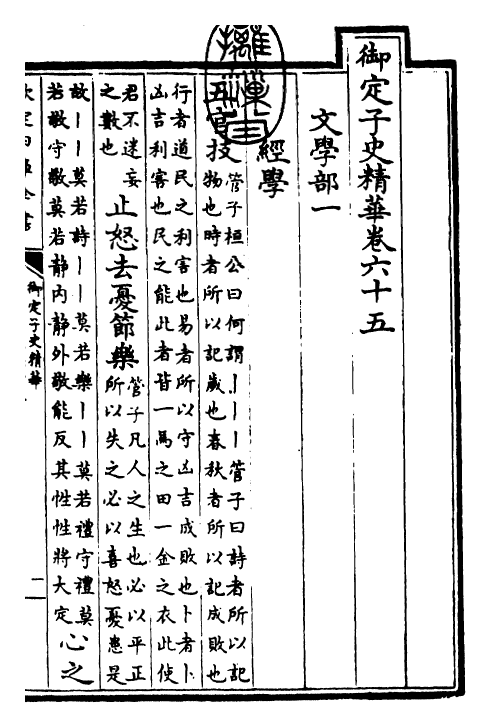 御定子史精華卷六十五
文學部一
經學
五官技
管子桓公曰何謂丨丨丨管子曰詩者所以記
物也時者所以記歲也春秋者所以記成敗也
行者道民之利害也易者所以守凶吉成敗也卜者卜
凶吉利害也民之能此者皆一馬之田一金之衣此使
君不迷妄
之數也
止怒去憂節樂
管子凡人之生也必以平正
所以失之必以喜怒憂患是
故丨丨莫若詩丨丨莫若樂丨丨莫若禮守禮莫
若敬守敬莫若靜內靜外敬能反其性性將大定
心之
欽定四庫全書
御定子史精華
一